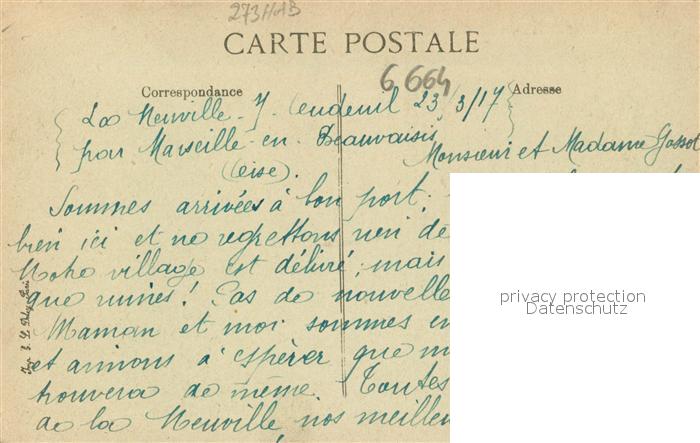 273HAB
CARTE POSTALE
6.664
Correspondance
Adresse
La Neuville-s/ Oudeuil 23/3/17
par Marseille-en-Beauvaisis
(Oise).
Monsieur et Madame
Sommes arrivées à bon port;
bien ici et ne regrettons rien de
Notre village est délivré; mais
que ruines! Pas de nouvelle
Maman et moi sommes en
et aimons à espérer que
trouvera de même. Toutes
de la Neuville, nos meilleu
Paris
privacy protection
Datenschutz